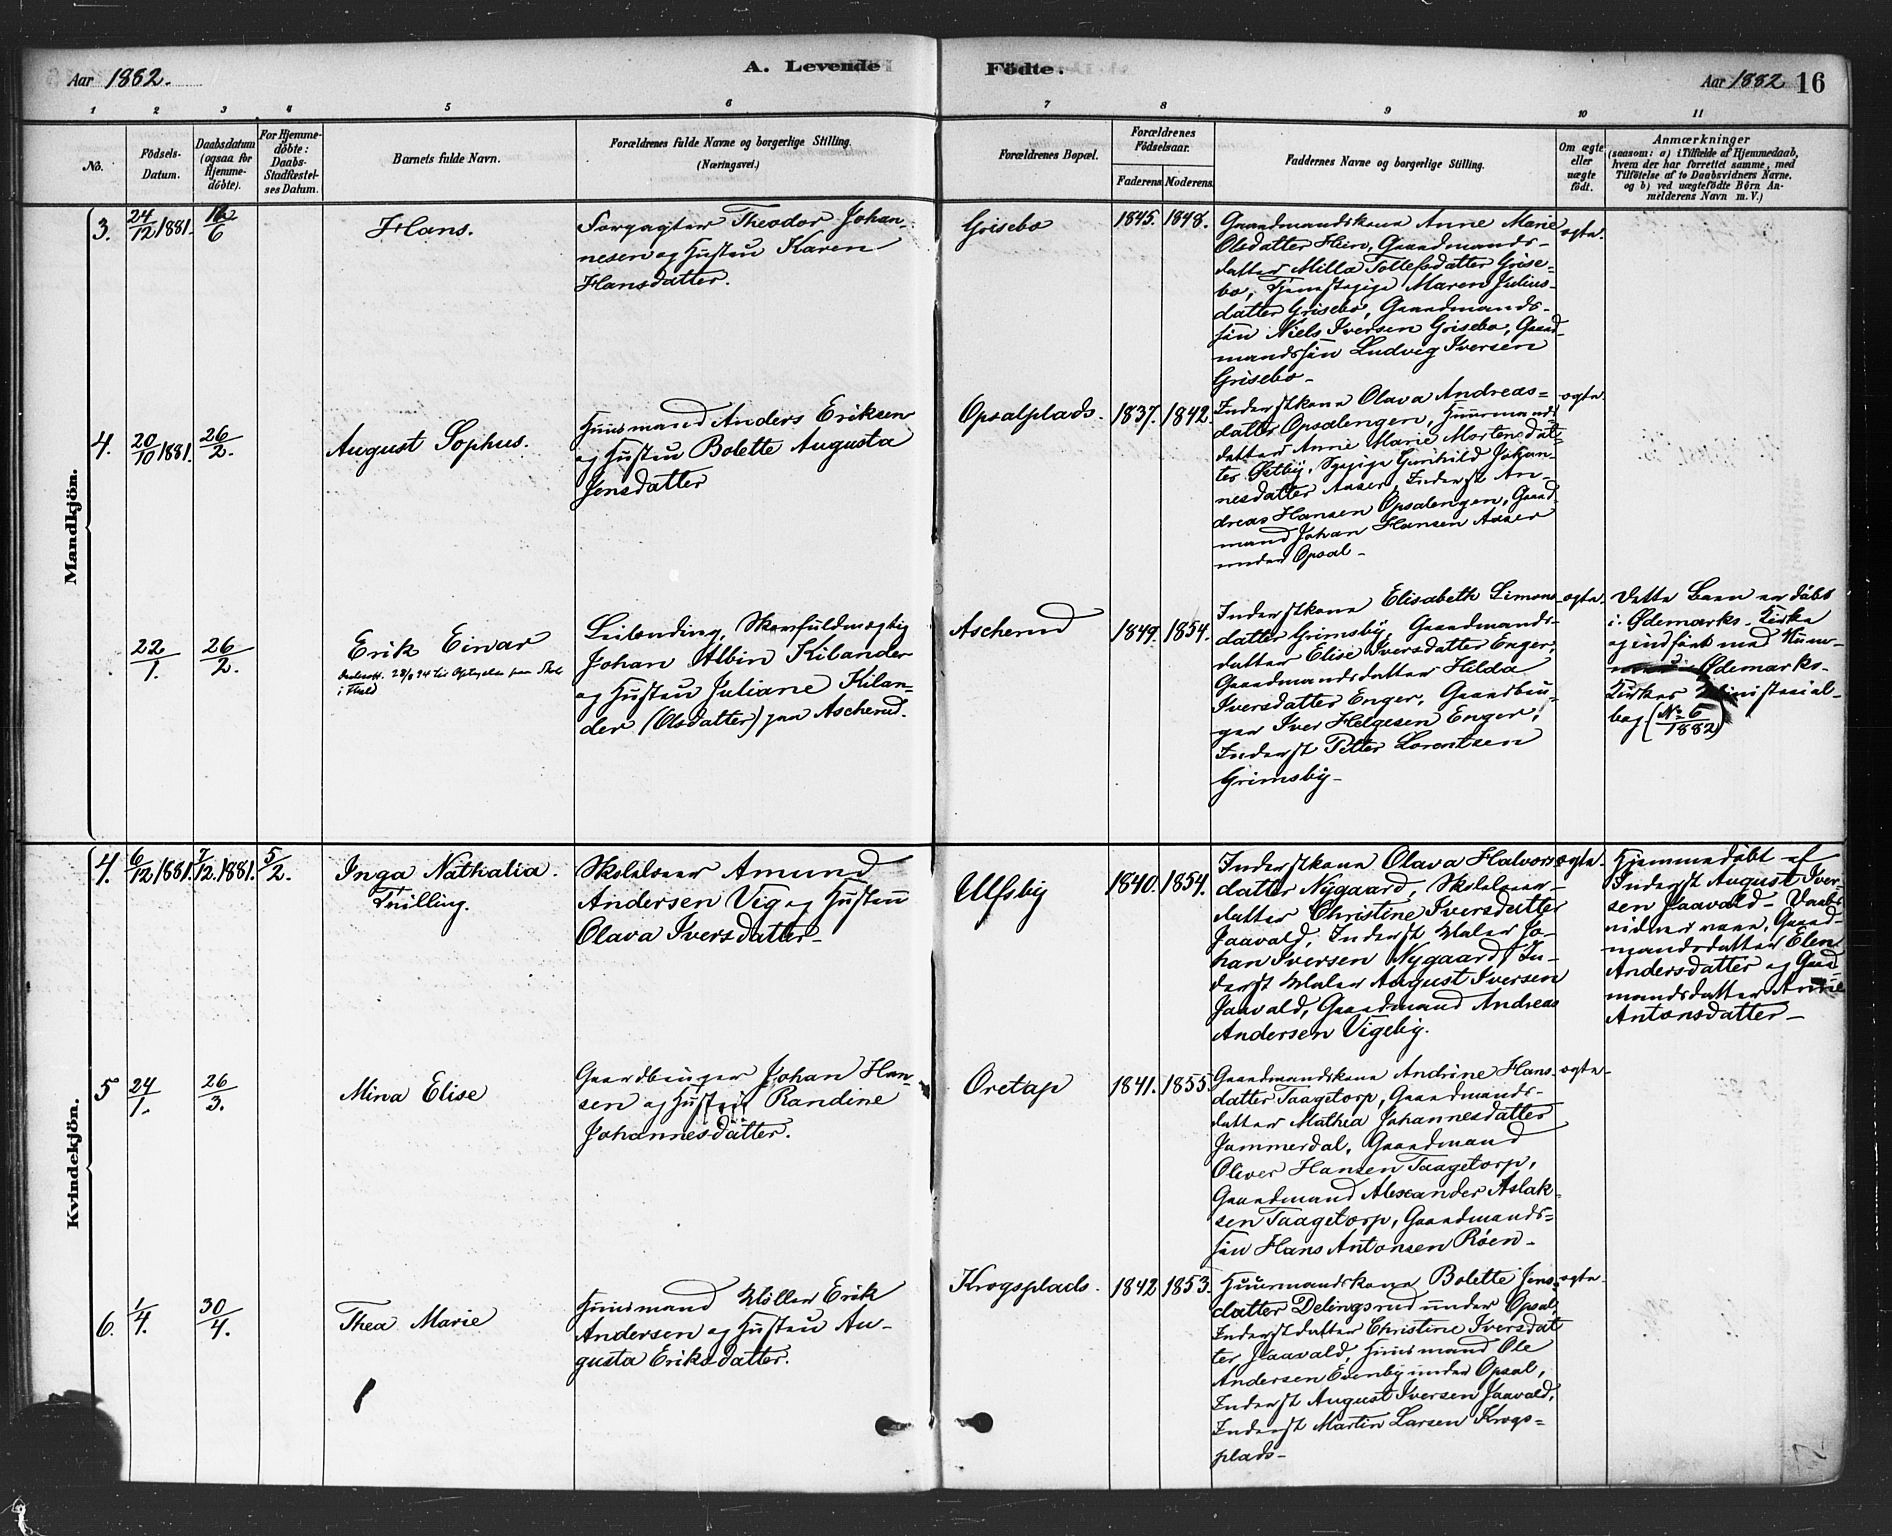 Aar 1882.
A. Levende Födte.
Aar 1882 16
1 2 3 4 5 6 7 8 9 10 11
No.
Födsels-
Datum.
Daabsdatum
(ogsaa for
Hjemme-
döbte).
For Hjemme-
döbte:
Daabs-
Stadfæstel-
ses Datum.
Barnets fulde Navn.
Forældrenes fulde Navne og borgerlige Stilling.
(Næringsvei.)
Forældrenes Bopæl.
Forældrenes
Födselsaar.
Faderens Moderens.
Faddernes Navne og borgerlige Stilling.
Om ægte
eller
uægte
födt.
Anmærkninger
(saasom: a) i Tilfælde af Hjemmedaab,
hvem der har forrettet samme, med
Tilföielse af to Daabsvidners Navne.
og b) ved uægtefödte Börn An-
melderens Navn m. V.)
Mandkjön.
3. 24/12 1881. /6
Hans.
Theodor Johan-
nesen og Hustru Karen
Hansdatter.
Grisebo
1845. 1848.
Gaardmandskone Anne Marie
Olsdatter Hein, Gaardmands-
datter Milla Tollefsdatter Grise-
bo, Tjenestepige Maren Julius-
datter Grisebo, Gaardmands-
sön Niels Iversen Grisebo, Gaard-
mandssön Ludvig Iversen
Grisebo-
ægte.
4. 20/10 1881. 26/2.
August Sophus.
Huusmand Anders Eriksen
og Hustru Bolette Augusta
Jensdatter
Opsalplads.
1837. 1842.
Inderstkone Olava Andreas-
datter Opsalengen, Huusmands-
datter Anne Marie Mortensdat-
ter Østby, Pige Gunhild Johan-
nesdatter Aaser, Inderst An-
dreas Hansen Opsalengen, Gaard-
mand Johan Hansen Aaser
under Opsal-
ægte.
22/1. 26/2.
Erik Einar
i Hald
Leilending, Skovfuldmægtig
Johan Albin Kilander
og Hustru Juliane Kilan-
der (Olsdatter) paa Ascherud.
Ascherud
1849. 1854.
Inderstkone Elisabeth Simons-
datter Grimsby, Gaardmands-
datter Elise Iversdatter Enger,
Gaardmandsdatter Hilda
Iversdatter Enger, Gaardbru-
ger Iver Helgesen Enger,
Inderst Petter Lorentsen
Grimsby-
ægte.
Dette Barn er döbt
i Ødemarks Kirke
og indfört med Num-
Ødemarks
Kirkes Ministerial-
bog (No 6/1882)
Kvindekjön.
4. 6/12 1881. 7/12. 1881. 5/2.
Inga Nathalia.
Tvilling.
Skolelærer Amund
Andersen Vig og Hustru
Olava Iversdatter-
Ulfsby
1840. 1854.
Inderstkone Olava Halvors-
datter Nygaard, Skolelærer-
datter Christine Iversdatter
Jaavald, Inderst Maler Jo-
han Iversen Nygaard, In-
derst Maler August Iversen
Jaavald, Gaardmand Andreas
Andersen Vigeby.
ægte.
Hjemmedöbt af
Inderst August Iver-
sen Jaavald- Daabs-
vidner vare, Gaard-
mandsdatter Elen
Andersdatter og Gaard-
mandsdatter Anne
Antonsdatter-
5 24/1. 26/3.
Mina Elise
Gaardbruger Johan Han-
sen og Hustru Randine
Johannesdatter.
Oretap
1841. 1855
Gaardmandskone Andrine Hans-
datter Taagetorp, Gaardmands-
datter Mathea Johannesdatter
Jammerdal, Gaardmand
Oliver Hansen Taagetorp,
Gaardmand Alexander Aslak-
sen Taagetorp, Gaardmands-
sön Hans Antonsen Röen-
ægte-
6. 1/4. 30/4.
Thea Marie
Huusmand Möller Erik
Andersen og Hustru Au-
gusta Eriksdatter.
Krogsplads.
1842 1853.
Huusmandskone Bolette Jens-
datter Delingsrud under Opsal,
Inderstdatter Christine Iversdat-
ter Jaavald, Huusmand Ole
Andersen Evenby under Opsal,
Inderst August Iversen Jaavald,
Inderst Martin Larsen Krogs-
plads-
ægte-